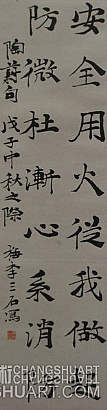 安全用火從我做
防微杜漸心系消
陶蔚句 戊子中秋之際 梅李三石寫
CHANGSHUART.COM